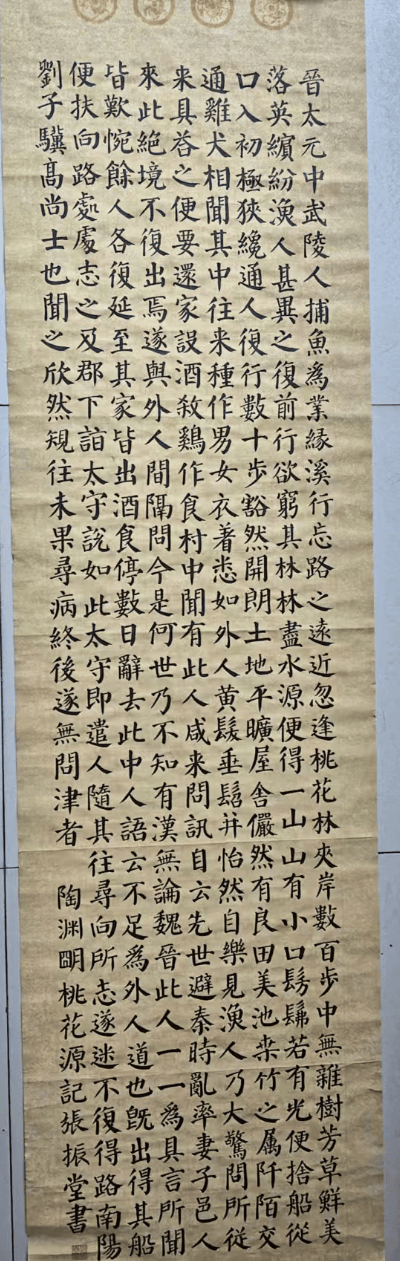 晉太元中武陵人捕魚爲業緣溪行忘路之遠近忽逢桃花林夾岸數百步中無雜樹芳草鮮美
落英繽紛漁人甚異之復前行欲窮其林林盡水源便得一山山有小口髣髴若有光便捨船從
口入初極狹纔通人復行數十步豁然開朗土地平曠屋舍儼然有良田美池桒竹之屬阡陌交
通雞犬相聞其中往来種作男女衣著悉如外人黃髮垂髫并怡然自樂見漁人乃大驚問所從
来具荅之便要還家設酒殺鷄作食村中聞有此人咸来問訊自云先世避秦時亂率妻子邑人
來此絕境不復出焉遂與外人間隔問今是何世乃不知有漢無論魏晉此人一一爲具言所聞
皆歎惋餘人各復延至其家皆出酒食停數日辭去此中人語云不足爲外人道也既出得其船
便扶向路處處志之及郡下詣太守說如此太守即遣人隨其往尋向所志遂迷不復得路南陽
劉子驥髙尚士也聞之欣然規往未果尋病終後遂無問津者 陶渊眀桃花源記張振堂書